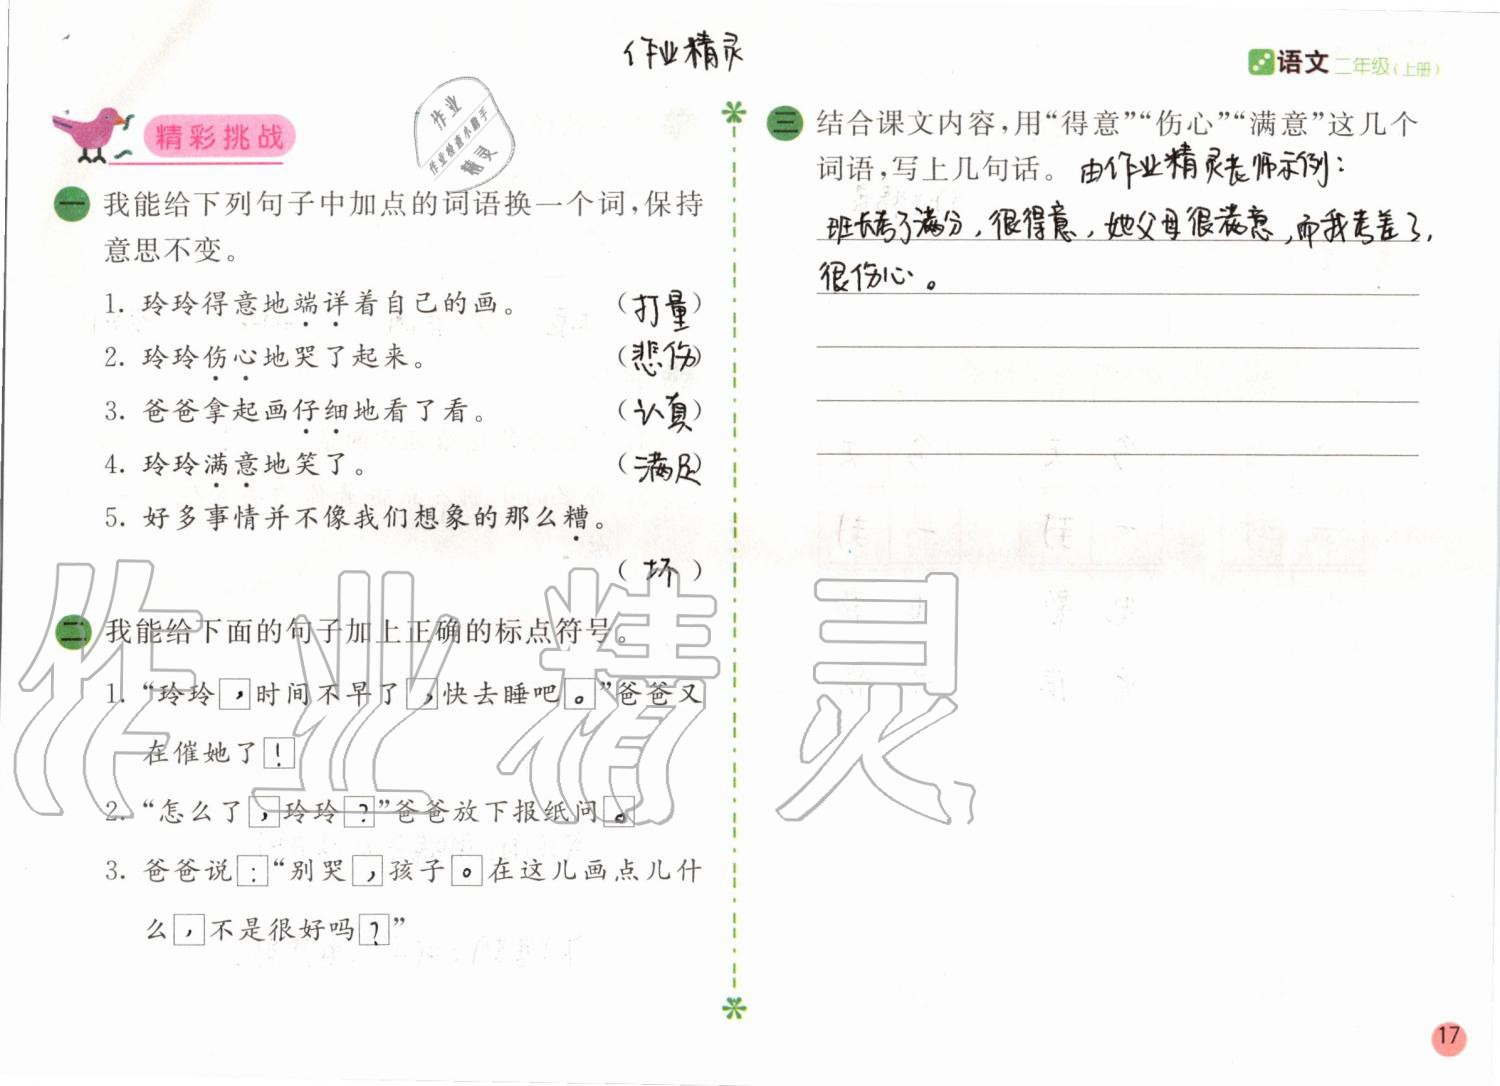 作业精灵
语文 二年级(上册)
作业
作业检查小助手
精灵
精彩挑战
一 我能给下列句子中加点的词语换一个词,保持
意思不变。
1. 玲玲得意地端详着自己的画。 (打量)
2. 玲玲伤心地哭了起来。 (悲伤)
3. 爸爸拿起画仔细地看了看。 (认真)
4. 玲玲满意地笑了。 (满足)
5. 好多事情并不像我们想象的那么糟。
(坏)
二 我能给下面的句子加上正确的标点符号。
1. “玲玲,时间不早了,快去睡吧。”爸爸又
在催她了!
2. “怎么了,玲玲?”爸爸放下报纸问。
3. 爸爸说:“别哭,孩子。在这儿画点儿什
么,不是很好吗?”
三 结合课文内容,用“得意”“伤心”“满意”这几个
词语,写上几句话。 由作业精灵老师示例:
班长考了满分,很得意,她父母很满意,而我考差了,
很伤心。
作业精灵
17